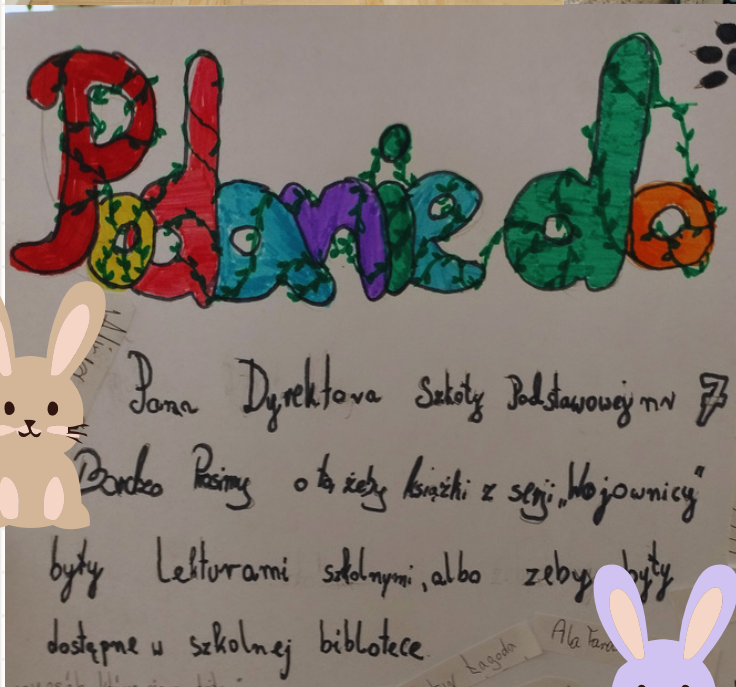 Podanie do
Pana Dyrektora Szkoły Podstawowej nr 7
Bardzo Prosimy o to, żeby książki z serji „Wojownicy"
były Lekturami szkolnymi, albo zeby były
dostępne w szkolnej biblotece.
Łagoda
Ala